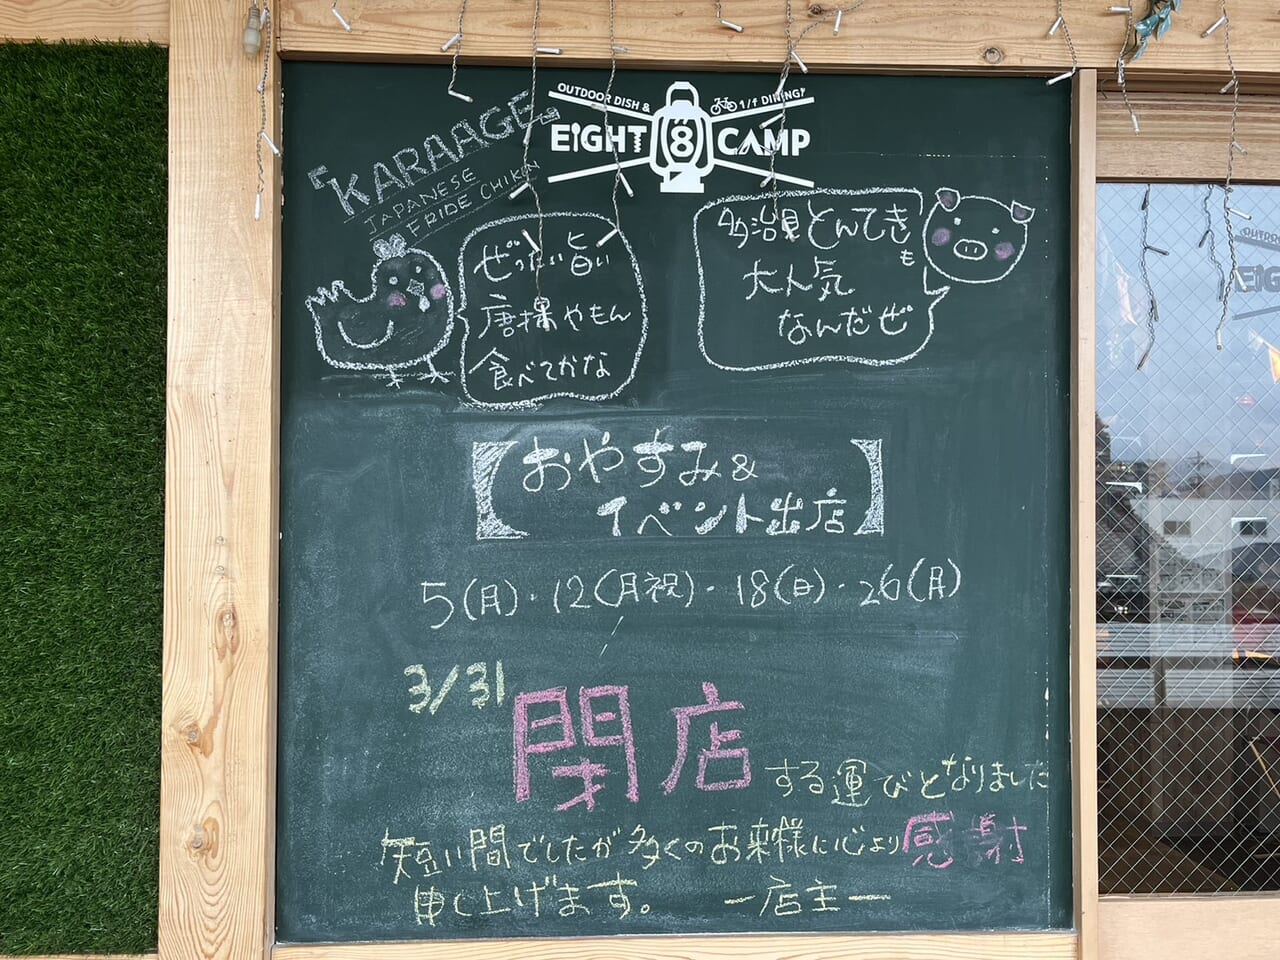 OUTDOOR DISH & 1/f DINING!
EiGHT 8 CAMP
「KARAAGE」
JAPANESE
FRIDE CHIKEN
ぜったい旨い
唐揚やもん
食べてかな
多治見とんてきも
大人気
なんだぜ
【おやすみ&
イベント出店】
5(月)・12(月祝)・18(日)・26(月)
3/31 閉店する運びとなりました
短い間でしたが多くのお来様に心より感謝
申し上げます。 ー店主ー